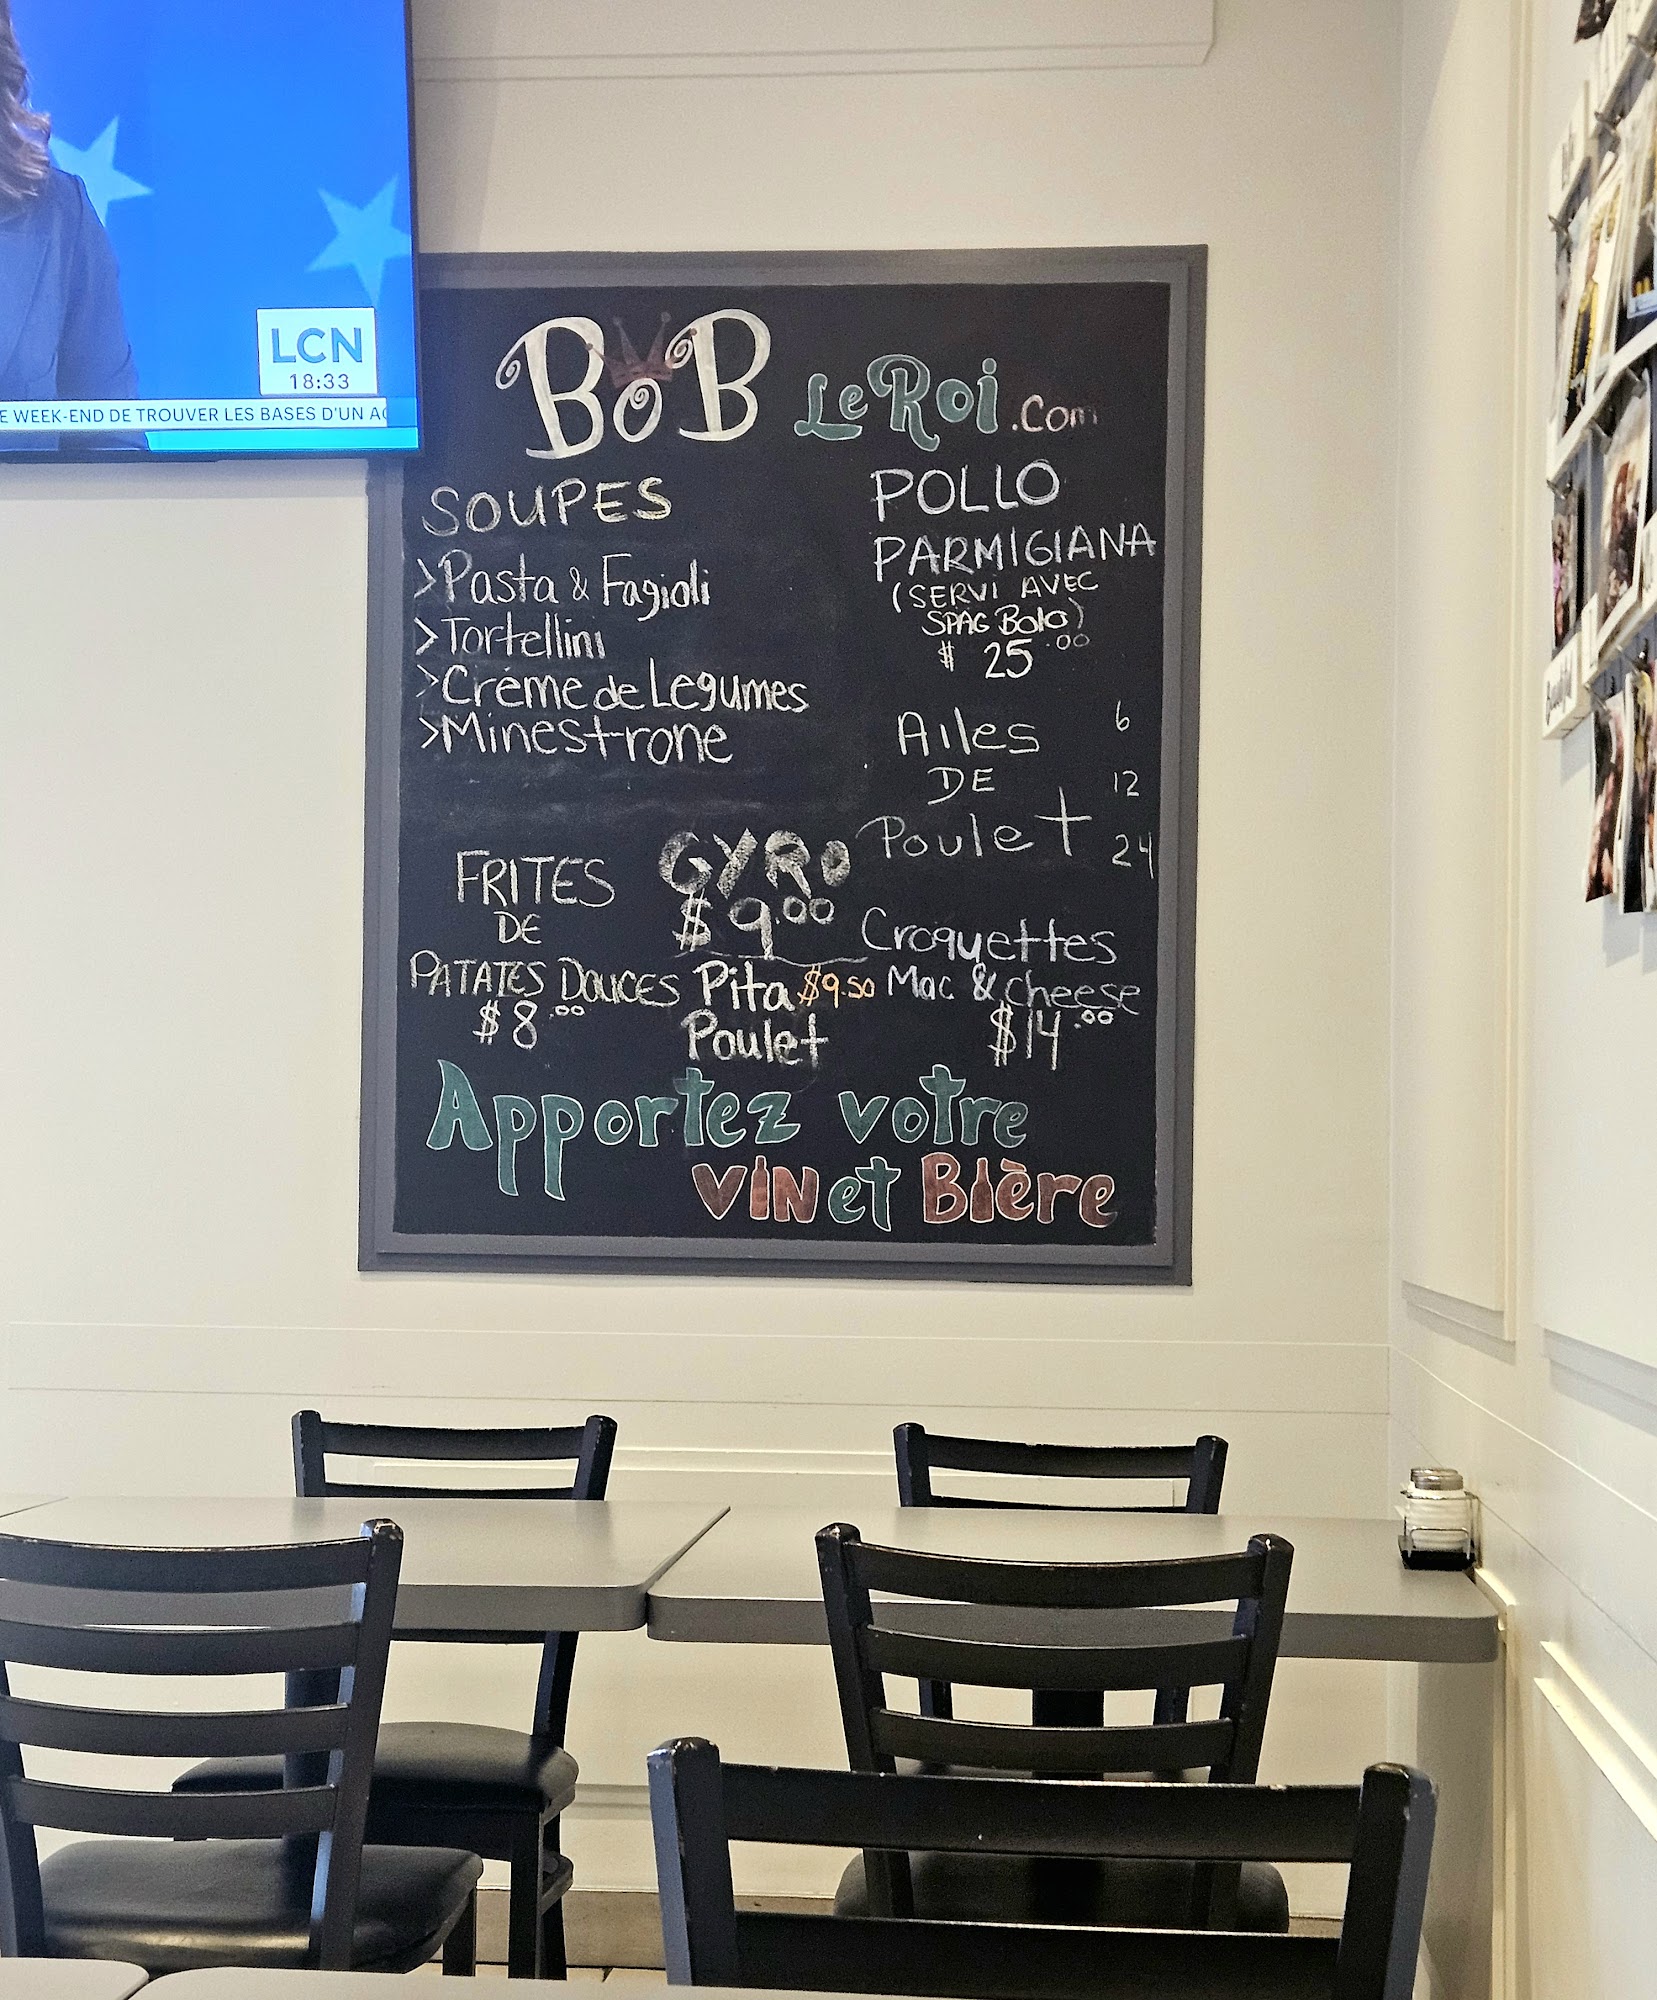 LCN
18:33
E WEEK-END DE TROUVER LES BASES D'UN AC
BOB LeRoi.com
SOUPES
>Pasta & Fagioli
>Tortellini
>Crème de Legumes
>Minestrone
POLLO
PARMIGIANA
(SERVI AVEC
SPAG Bolo)
$ 25.00
Ailes 6
DE 12
Poulet 24
FRITES
DE
PATATES DOUCES
$8.00
GYRO
$9.00
Pita $9.50
Poulet
Croquettes
Mac & cheese
$14.00
Apportez votre
VIN et Bière